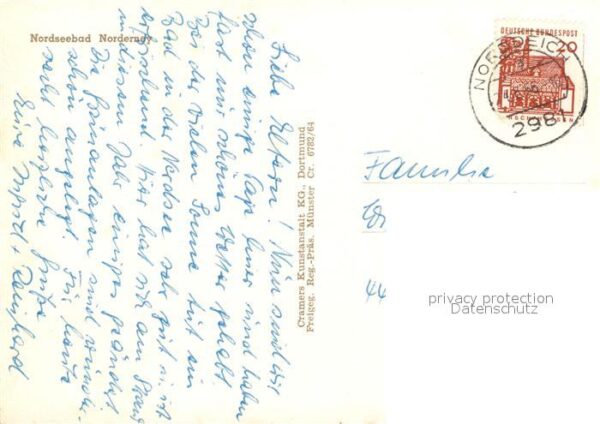 Nordseebad Norderney
Liebe Eltern! Nun sind wir
schon einige Tage hier und haben
fast nur schönes Wetter gehabt.
Bei der vielen Sonne tut ein
Bad in der Nordsee sehr gut, es ist
erfrischend. Hier hat sich am Strand
in diesem Jahr einiges geändert.
Die Grünanlagen sind wunder-
schön angelegt. Für heute
recht herzliche Grüße
Eure Ingrid + Reinhard
Cramers Kunstanstalt KG., Dortmund
Freigeg. Reg.-Präs. Münster Cr. 6782/64
DEUTSCHE BUNDESPOST
20
NORDDEICH
298
Familie
44
privacy protection
Datenschutz